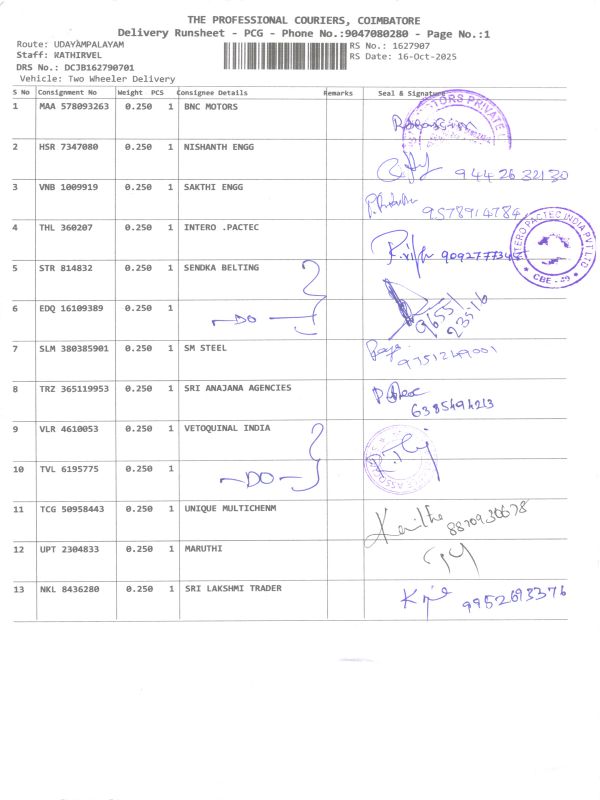 THE PROFESSIONAL COURIERS, COIMBATORE
Delivery Runsheet - PCG - Phone No.:9047080280 - Page No.:1
Route: UDAYAMPALAYAM
Staff: KATHIRVEL
DRS No.: DCJB162790701
Vehicle: Two Wheeler Delivery
RS No.: 1627907
RS Date: 16-Oct-2025
S No Consignment No Weight PCS Consignee Details Remarks Seal & Signature
1 MAA 578093263 0.250 1 BNC MOTORS
2 HSR 7347080 0.250 1 NISHANTH ENGG 9442632130
3 VNB 1009919 0.250 1 SAKTHI ENGG 9578914784
4 THL 360207 0.250 1 INTERO .PACTEC 9092777345
INTERO PACTEC INDIA PVT LTD
CBE - 49
5 STR 814832 0.250 1 SENDKA BELTING
6 EDQ 16109389 0.250 1 -DO- 96551 23516
7 SLM 380385901 0.250 1 SM STEEL 9751249001
8 TRZ 365119953 0.250 1 SRI ANAJANA AGENCIES 6385494213
9 VLR 4610053 0.250 1 VETOQUINAL INDIA
10 TVL 6195775 0.250 1 -DO-
11 TCG 50958443 0.250 1 UNIQUE MULTICHENM 8870930678
12 UPT 2304833 0.250 1 MARUTHI
13 NKL 8436280 0.250 1 SRI LAKSHMI TRADER 9952693376